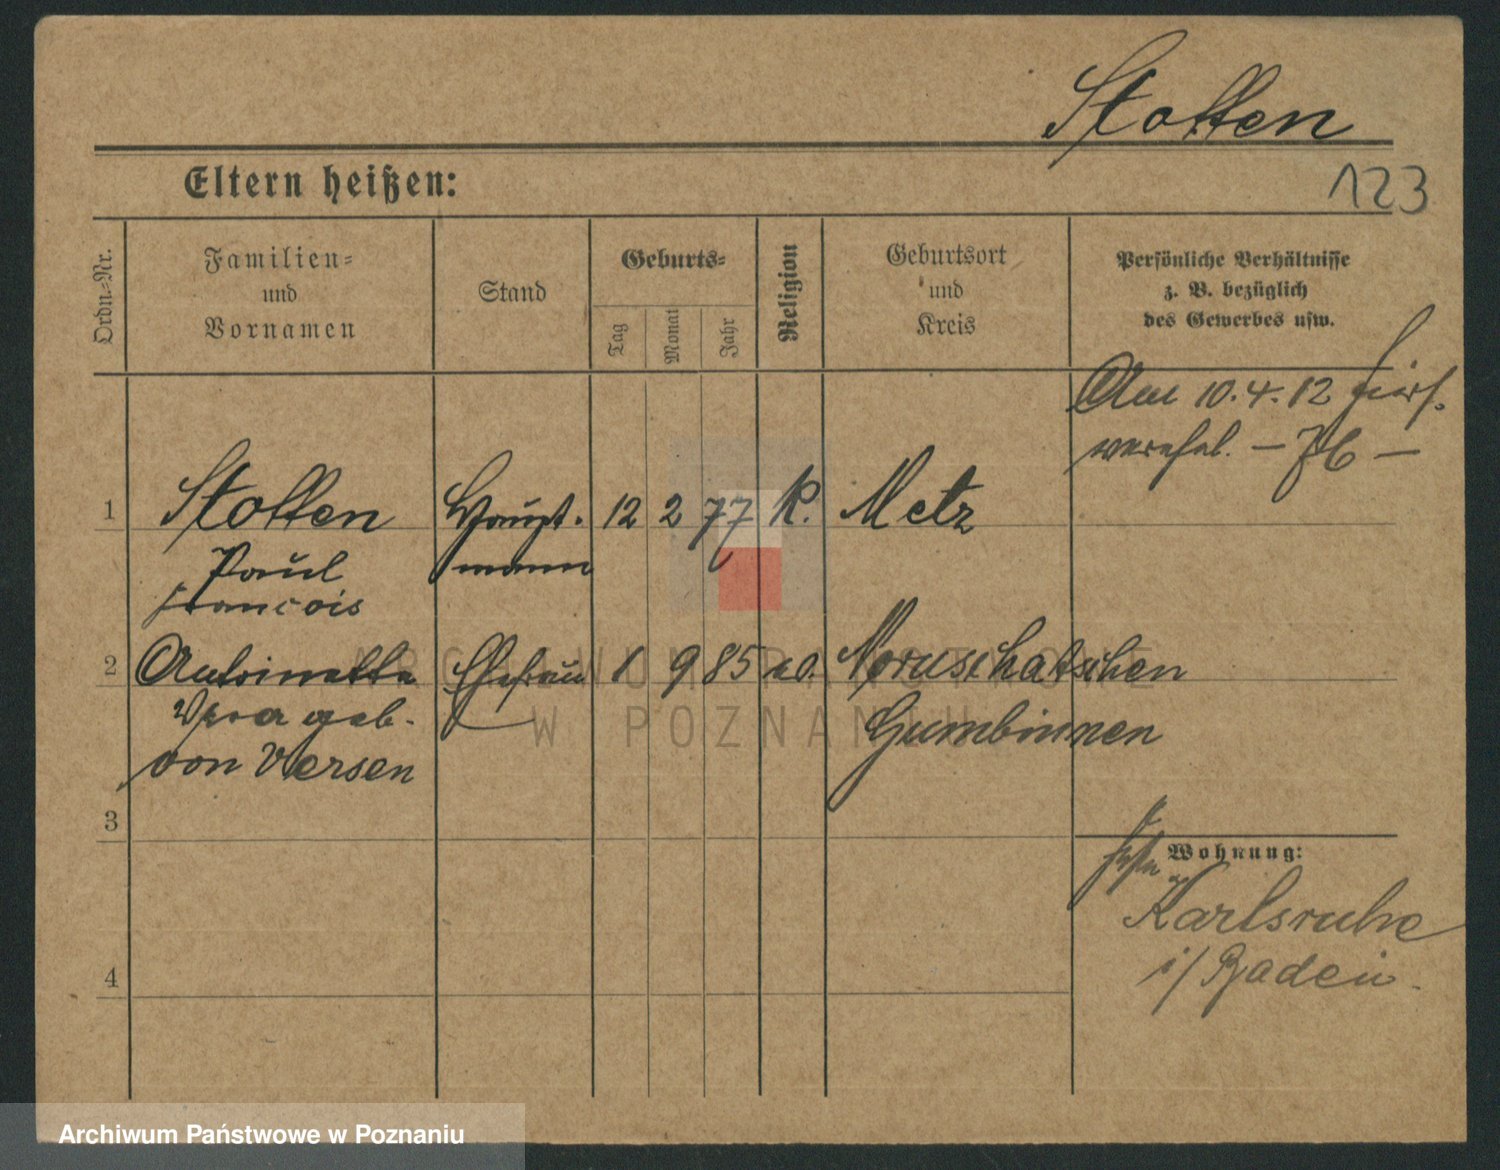 Stotten
Eltern heißen:
123
Ordn.-Nr.
Familien-
und
Vornamen
Stand
Geburts-
Tag
Monat
Jahr
Religion
Geburtsort
und
Kreis
Persönliche Verhältnisse
z. B. bezüglich
des Gewerbes usw.
Am 10.4.12 hier
1
Stotten
Paul
Francois
Haupt-
mann
12 2 77 K. Metz
2
Antoinette
Vera geb.
von Versen
Ehefrau
1 9 85 ev. Noruschatschen
Gumbinnen
3
Wohnung:
Karlsruhe
i/Baden.
4
ARCHIWUM PAŃSTWOWE
W POZNANIU
Archiwum Państwowe w Poznaniu